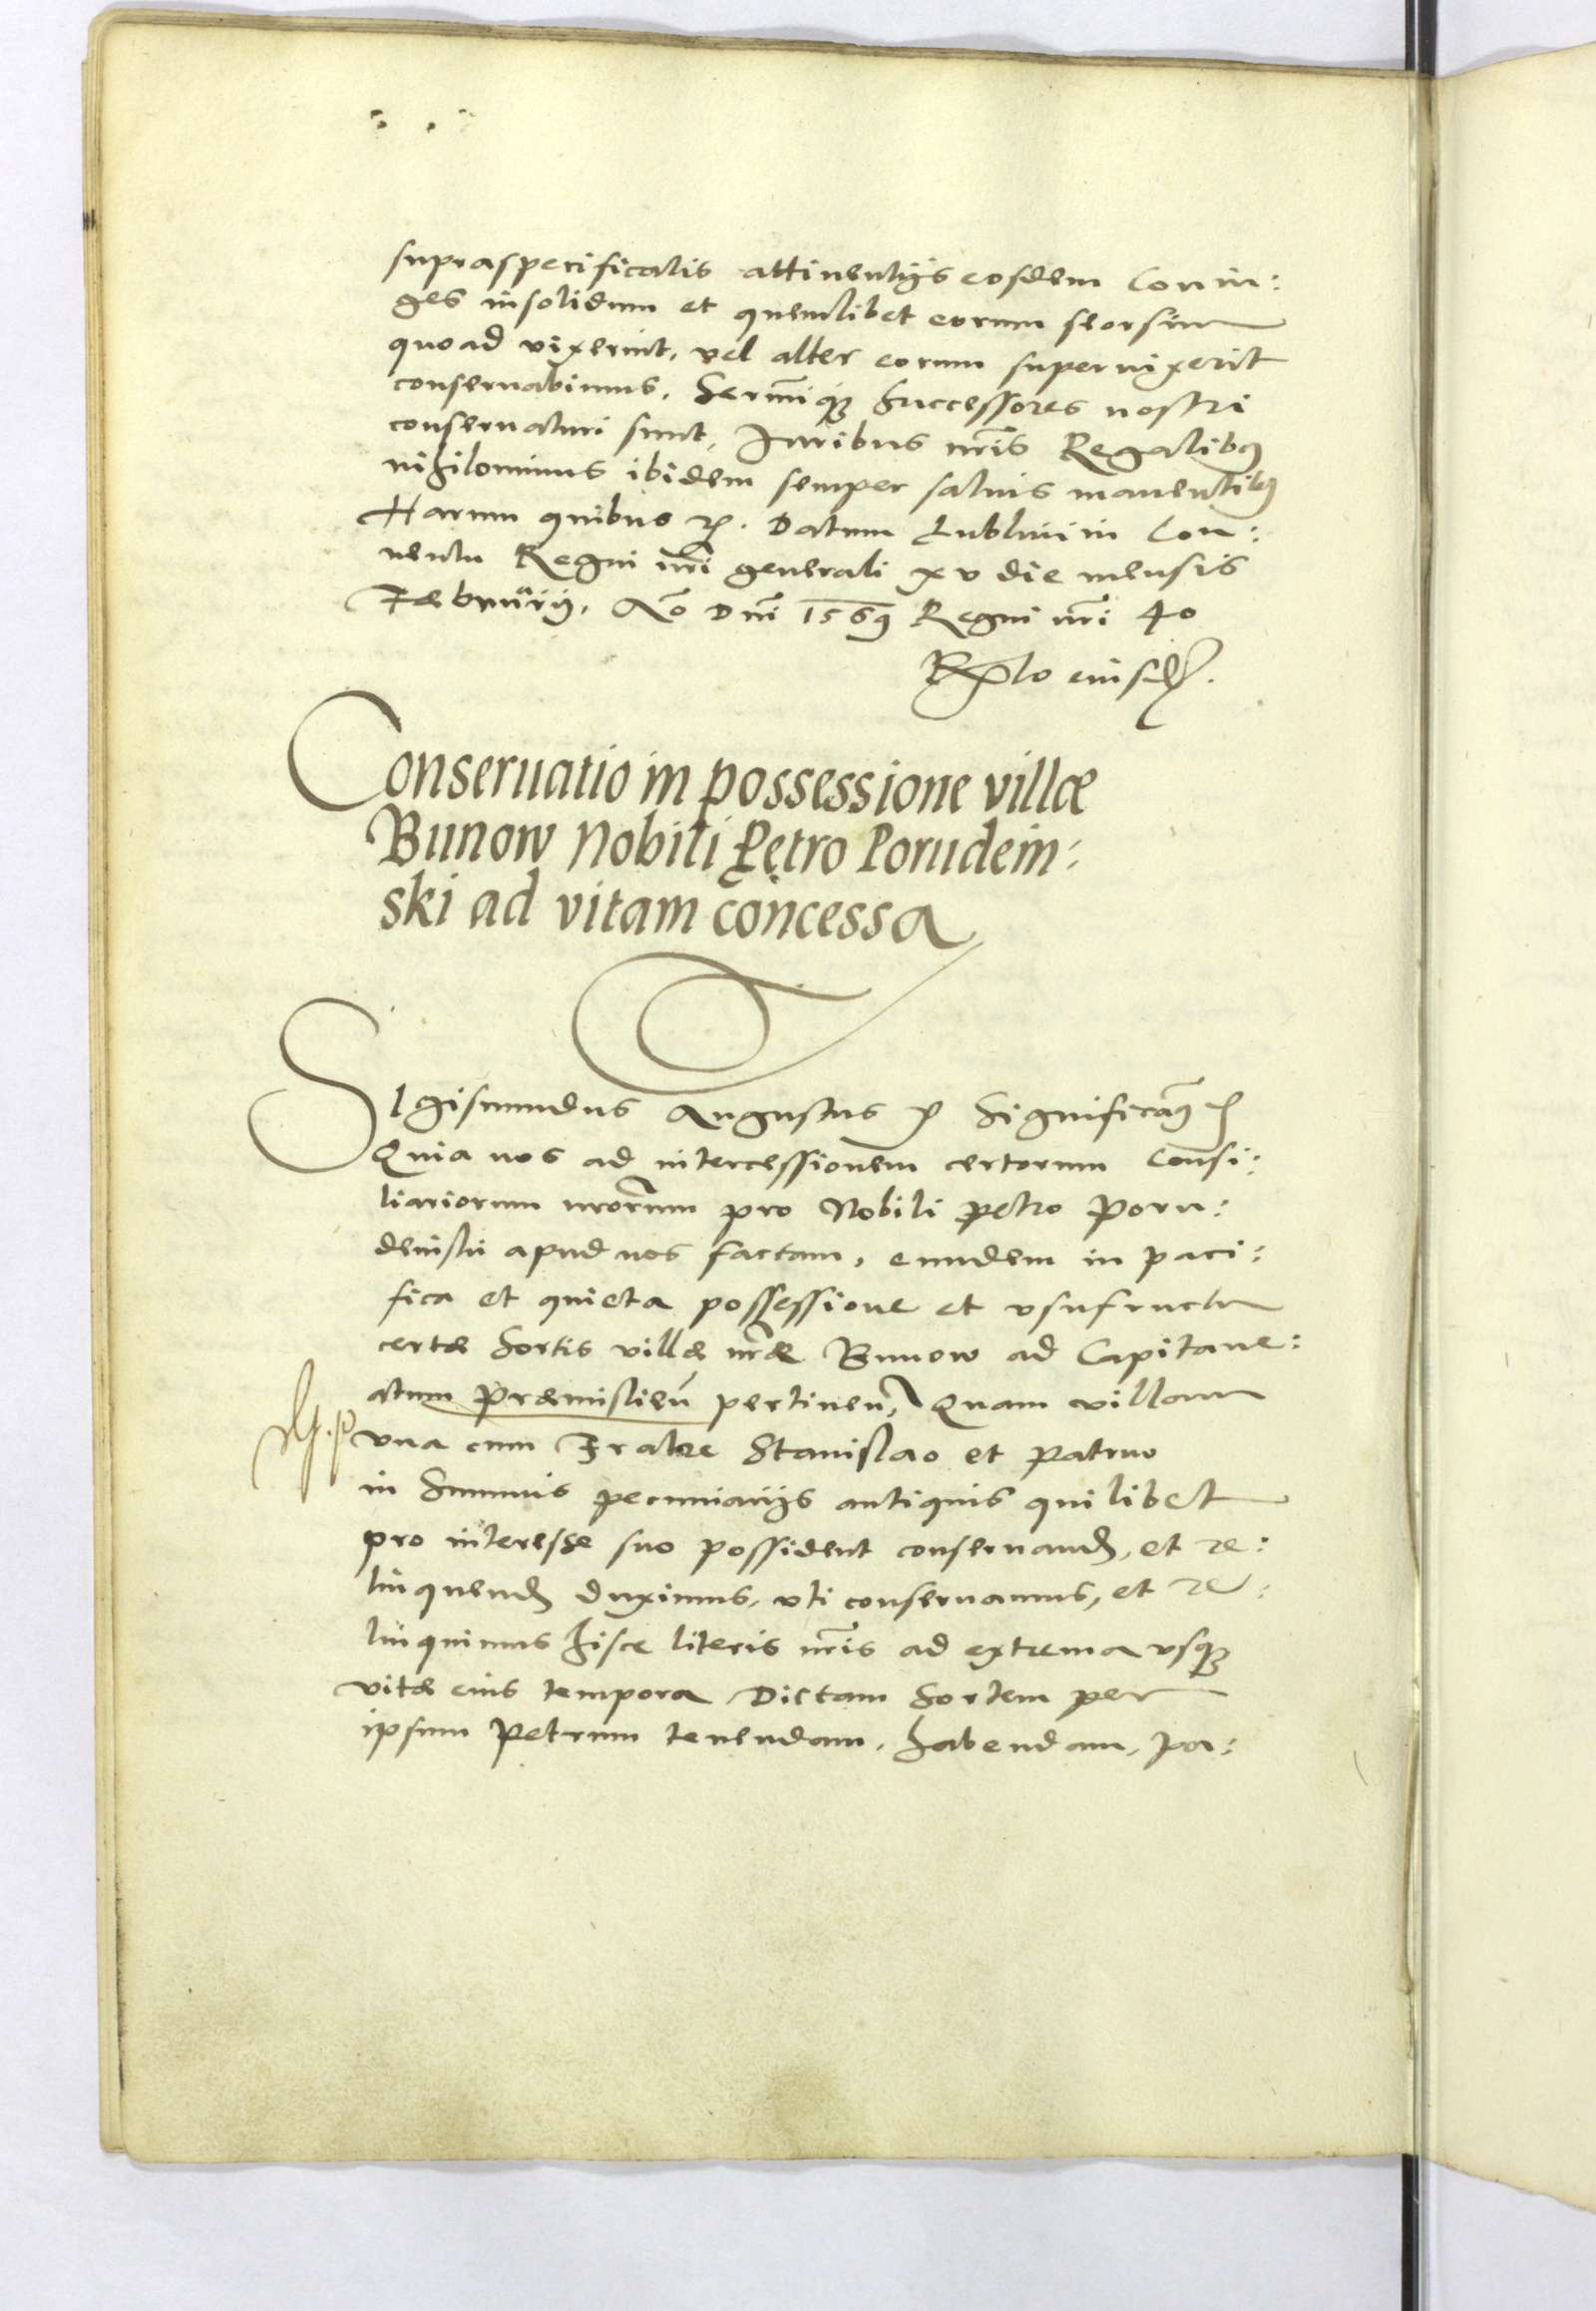 supraspecificatis attinentijs eosdem Coniu:
ges insolidum et quemlibet eorum seorsim
quoad vixerint, vel alter eorum supervixerit
conseruabimus. Sermĩq; Successores nostri
conseruaturi sunt, Iuribus nr̃is Regalibq
nihilominus ibidem semper saluis manentibq
Harum quibus etc. Datum Lublini in Con:
uentu Regni nr̃i generali xv die mensis
Februarij, Aõ Dnĩ 1569 Regni nr̃i 40
Rp̃lo eiusd.
Conseruatio in possessione villæ
Bunow Nobili Petro Porudein:
ski ad vitam concessa
SIgismundus Augustus etc Significam9 etc
Quia nos ad intercessionem certorum Consi:
liariorum nrorum pro Nobili Petro Poru:
deinski apud nos factam, eundem in paci:
fica et quieta possessione et vsufructu
certæ Sortis villæ nr̃æ Bunow ad Capitane:
atum Præmislień pertinen, Quam villam
vna cum Fratre Stanislao et Patruo
in Summis pecuniarijs antiquis quilibet
pro interesse suo possident conseruand, et re:
linquend duximus, vti conseruamus, et re:
linquimus hisce literis nr̃is ad extrema vsq;
vitæ eius tempora Dictam Sortem per
ipsum Petrum tenendam, habendam, pa: